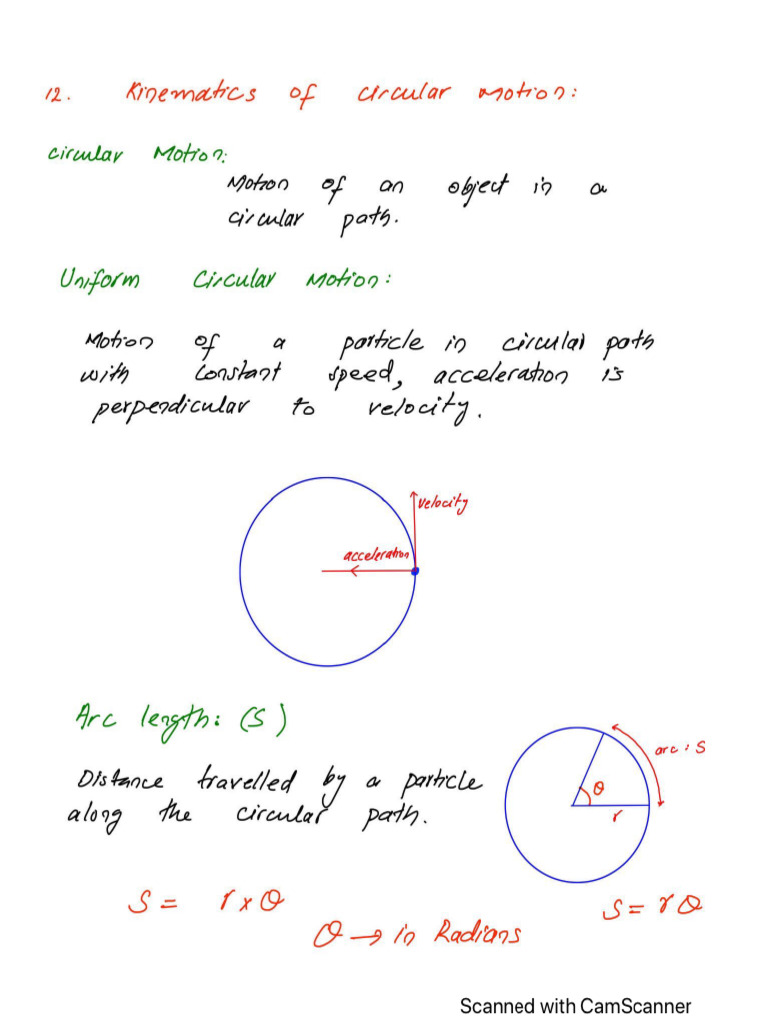 12. Kinematics of circular motion:
circular Motion:
Motion of an object in a
circular path.
Uniform Circular Motion:
Motion of a particle in circular path
with constant speed, acceleration is
perpendicular to velocity.
velocity
acceleration
Arc length: (S)
arc : S
Distance travelled by a particle
along the circular path.
θ
r
S = r x θ
S = r θ
θ → in Radians
Scanned with CamScanner